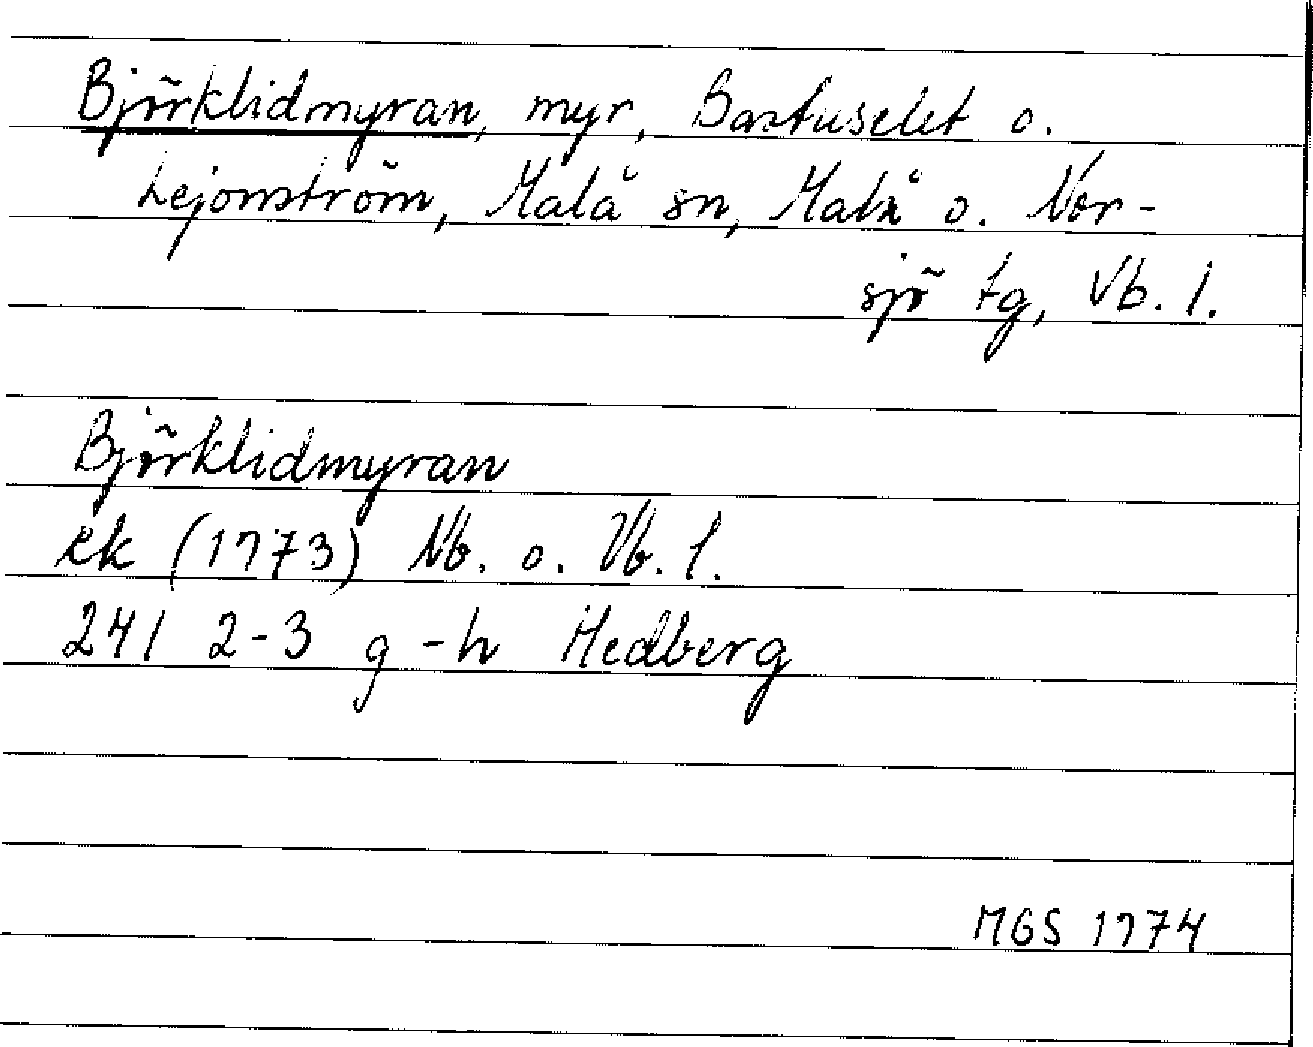 Björklidmyran, myr, Bastuselet o.
Lejonström, Malå sn, Malå o. Nor-
sjö tg, Vb. l.
Björklidmyran
ek (1973) Nb. o. Vb. l.
241 2-3 g-h Hedberg
MGS 1974